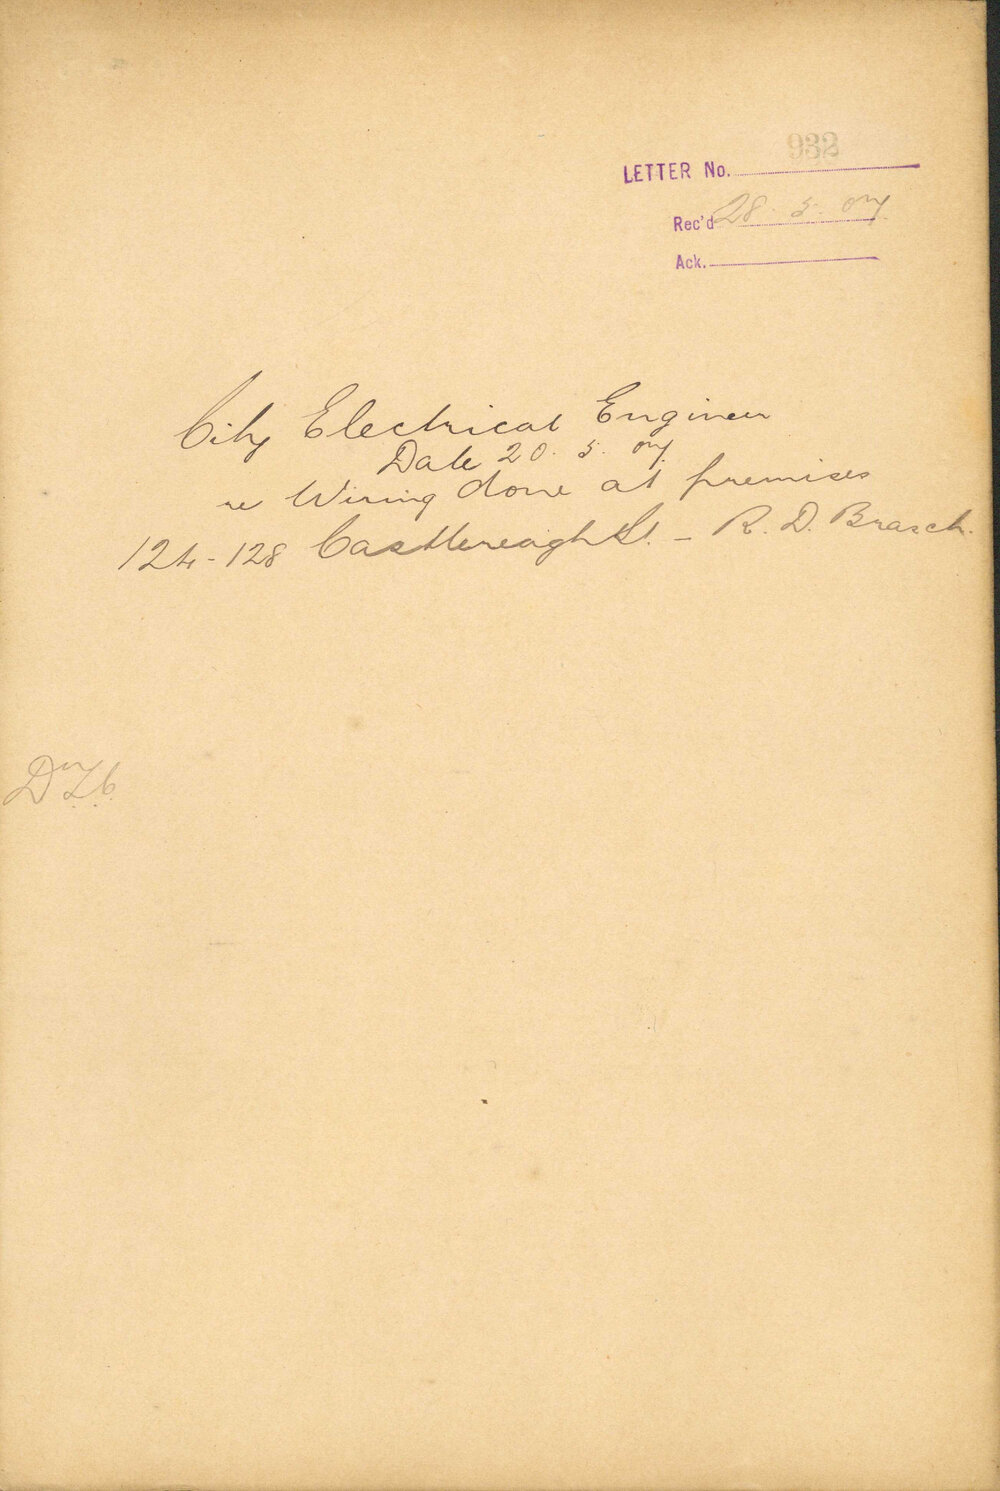 LETTER No. 932
Rec'd 28. 5. 07.
Ack.
City Electrical Engineer
Date 20. 5. 07.
re Wiring done at premises
124-128 Castlereagh St. - R. D. Brasch.